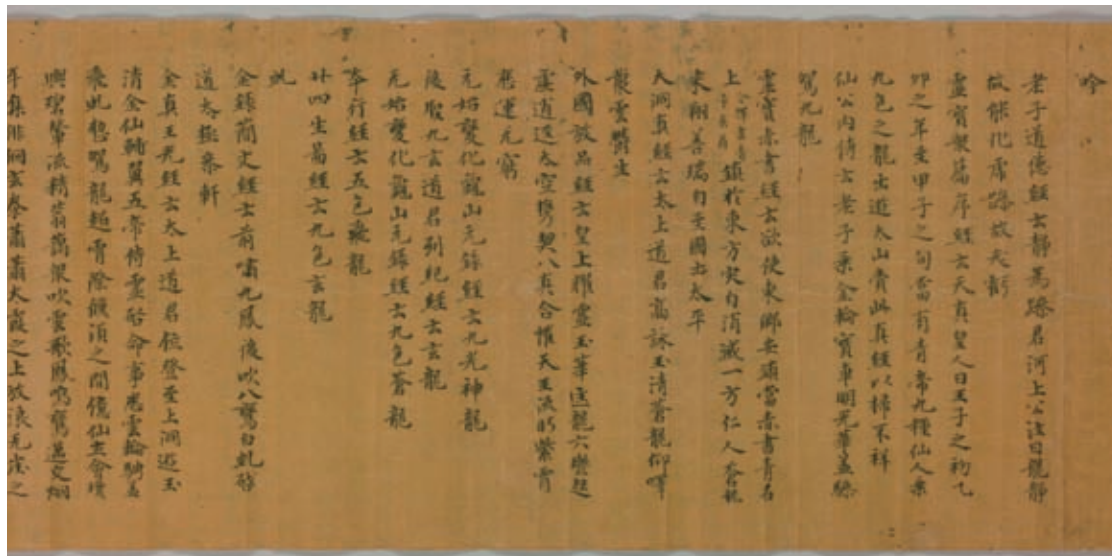 吟
老子道德經云靜為躁君河上公注曰龍靜
故能化虎躁故夭虧
靈寶序經云天真皇人曰王子之初乙
卯之年至甲子之旬當有青帝九種仙人乘
九色之龍出遊太山賷此真經以掃不祥
仙公內傳云老子乘金輪寶車明光華蓋驂
駕九龍
靈寶赤書經云欲使東鄉安鎮當赤書青石
上鎮於東方灾自消滅一方仁人蒼龍
來翔善瑞自至國土太平
大洞真經云太上道君高詠玉清蒼龍仰暉
散雲鬱生
外國放品經云皇上靈玉華逸龍六轡超
虛逍遥太空攜契八真合惟天王流眄紫霄
慈運元窮
元始變化寶山元錄經云九光神龍
後聖九玄道君列紀經云玄龍
元始變化龍山元錄經云九色蒼龍
奉行經云五色飛龍
外四生篇經云九色玄龍
虬
金錄簡文經云前嘯九鳳後吹八鸞白虬啓
道太極參軒
金真玉光經云太上道君位登至上洞遊玉
清金仙輔翼五帝侍靈啓命事雲輪
乘虬駕龍超霄須之間仙主會
碧輦流精藹眾吹雲歌鳳鳴鸞交網
集俳徊雲卷蕭蕭大霞之上放浪無崖之